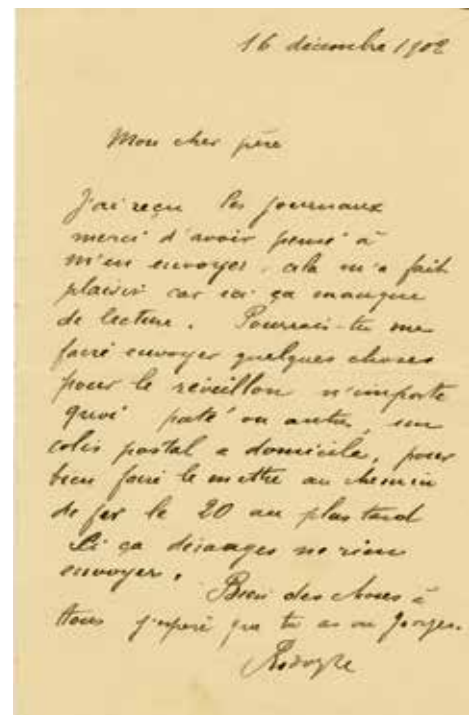 16 décembre 1902
Mon cher père
J'ai reçu les journaux
merci d'avoir pensé à
m'en envoyer. cela m'a fait
plaisir car ici ça manque
de lecture. Pourrais-tu me
faire envoyer quelques choses
pour le réveillon n'importe
quoi paté ou autre, un
colis postal a domicile, pour
bien faire le mettre au chemin
de fer le 20 au plus tard
Si ça déranges ne rien
envoyer.
Bien des choses à
tous j'espère que tu as vu Georges.